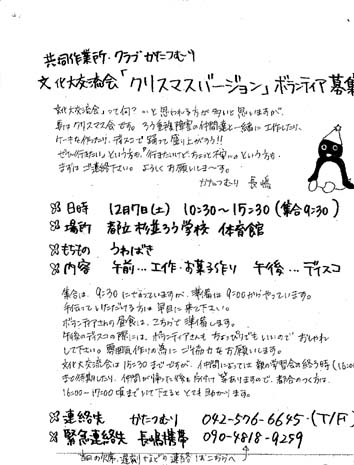 共同作業所・クラブかたつむり
文化大交流会「クリスマスバージョン」ボランティア募集
文化大交流会って何？…と思われる方が多いと思いますが、
実はクリスマス会です。ろう重複障害の仲間達と一緒に工作したり、
ケーキを作ったり、ディスコで踊って盛り上がろう！！
ぜひ行きたい！という方も、行きたいけどちょっと不安…という方も、
まずはご連絡下さい。よろしくお願いしま〜す。
かたつむり 長嶋
日時 12月7日(土) 10:30〜15:30 (集合9:30)
場所 都立杉並ろう学校 体育館
もちもの うわばき
内容 午前…工作・お菓子作り 午後…ディスコ
集合は、9:30になっていますが、準備は9:00からやっています。
手伝っていただける方は早目に来て下さい。
ボランティアさんの昼食は、こちらで準備します。
午後のディスコの際には、ボランティアさんもちょっぴりでもいいのでおしゃれ
して下さい。雰囲気作りの為にご協力をお願いします。
文化大交流会は15:30までですが、仲間によっては親の学習会の終る時(16:00)
まで待機したり、仲間が帰った後も片付け等ありますので、都合のつく方は、
16:00〜17:00頃までいて下さるととても助かります。
連絡先 かたつむり 042-576-6645・(T/F)
緊急連絡先 長嶋携帯 090-4818-9259
当日の欠席、遅刻などの連絡はこちらへ